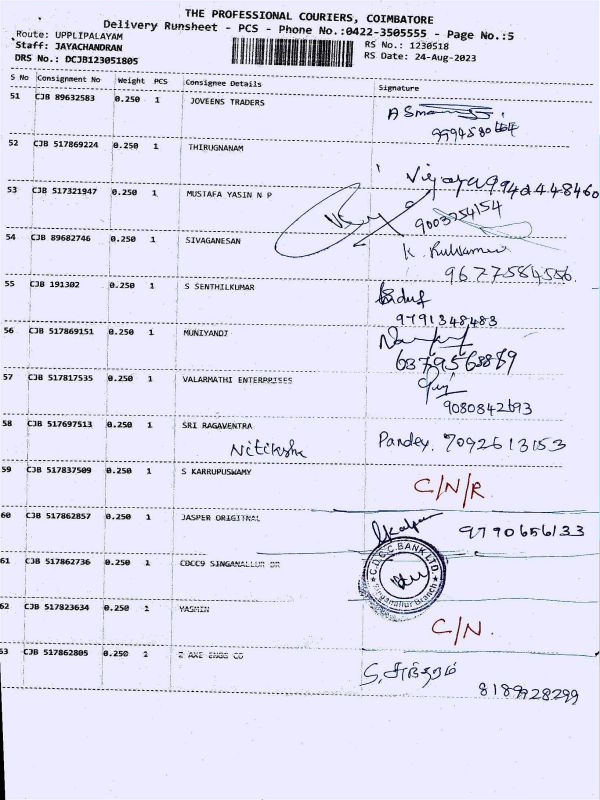 THE PROFESSIONAL COURIERS, COIMBATORE
Delivery Runsheet - PCS - Phone No.:0422-3505555 - Page No.:5
Route: UPPLIPALAYAM
RS No.: 1230518
Staff: JAYACHANDRAN
RS Date: 24-Aug-2023
DRS No.: DCJB123051805
S No Consignment No Weight PCS Consignee Details Signature
51 CJB 89632583 0.250 1 JOVEENS TRADERS
52 CJB 517869224 0.250 1 THIRUGNANAM
53 CJB 517321947 0.250 1 MUSTAFA YASIN N P 9003754154
54 CJB 89682746 0.250 1 SIVAGANESAN
9677584556
55 CJB 191302 0.250 1 S SENTHILKUMAR
9791348483
56 CJB 517869151 0.250 1 MUNIYANDI
57 CJB 517817535 0.250 1 VALARMATHI ENTERPRISES
9080842693
58 CJB 517697513 0.250 1 SRI RAGAVENTRA
Nitiksha Pandey. 7092613153
59 CJB 517837509 0.250 1 S KARRUPUSWAMY
C/N/R.
60 CJB 517862857 0.250 1 JASPER ORIGITNAL 9790656133
61 CJB 517862736 0.250 1 CDCC9 SINGANALLUR BR
C.D.C.C. BANK LTD. Singanallur Branch
62 CJB 517823634 0.250 1 YASMIN
C/N.
63 CJB 517862805 0.250 1 Z AXE ENGG CO
8189928299